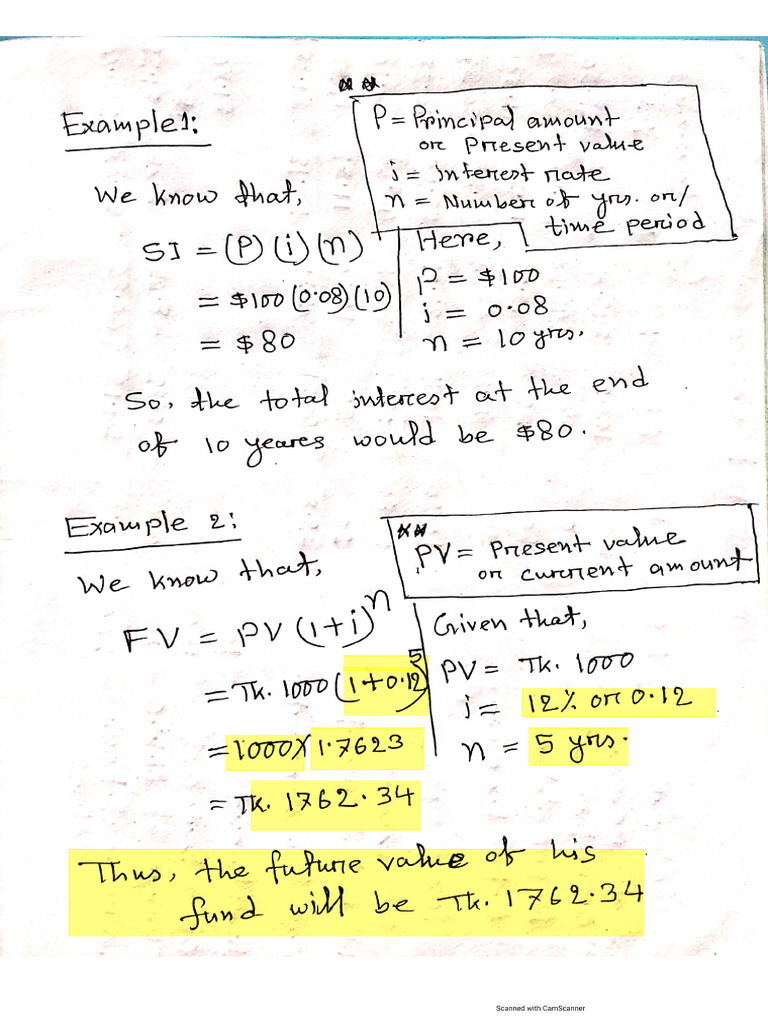 **
Example1:
P = Principal amount
or Present value
i = interest rate
n = Number of yrs. or/
time period
We know that,
SI = (P) (i) (n)
= $100 (0.08) (10)
= $80
Here,
P = $100
i = 0.08
n = 10 yrs.
So, the total interest at the end
of 10 yeares would be $80.
Example 2:
**
PV = Present value
or current amount
We know that,
FV = PV (1+i)^n
= Tk. 1000 (1+0.12)^5
= 1000 X 1.7623
= Tk. 1762.34
Given that,
PV = Tk. 1000
i = 12% or 0.12
n = 5 yrs.
Thus, the future value of his
fund will be Tk. 1762.34
Scanned with CamScanner